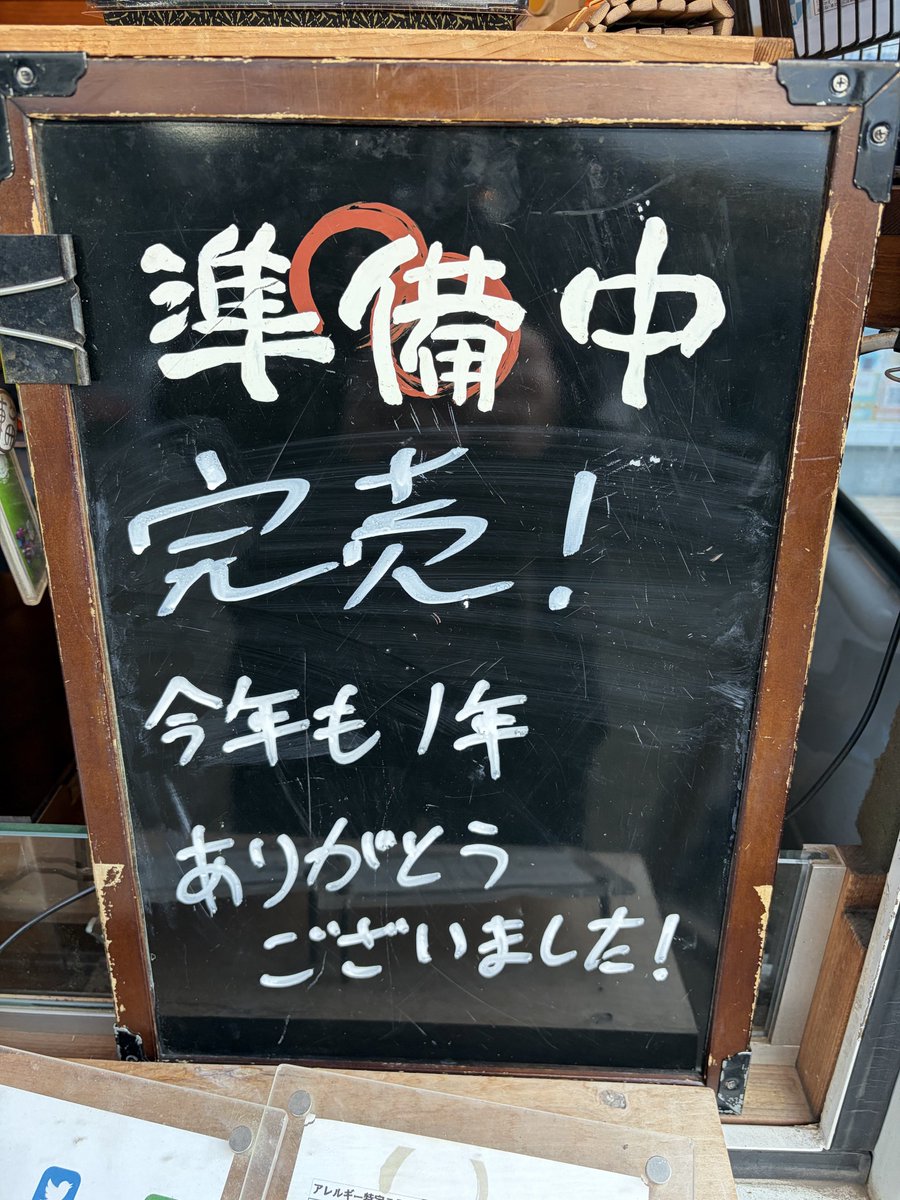 準備中
完売!
今年も1年
ありがとう
ございました!